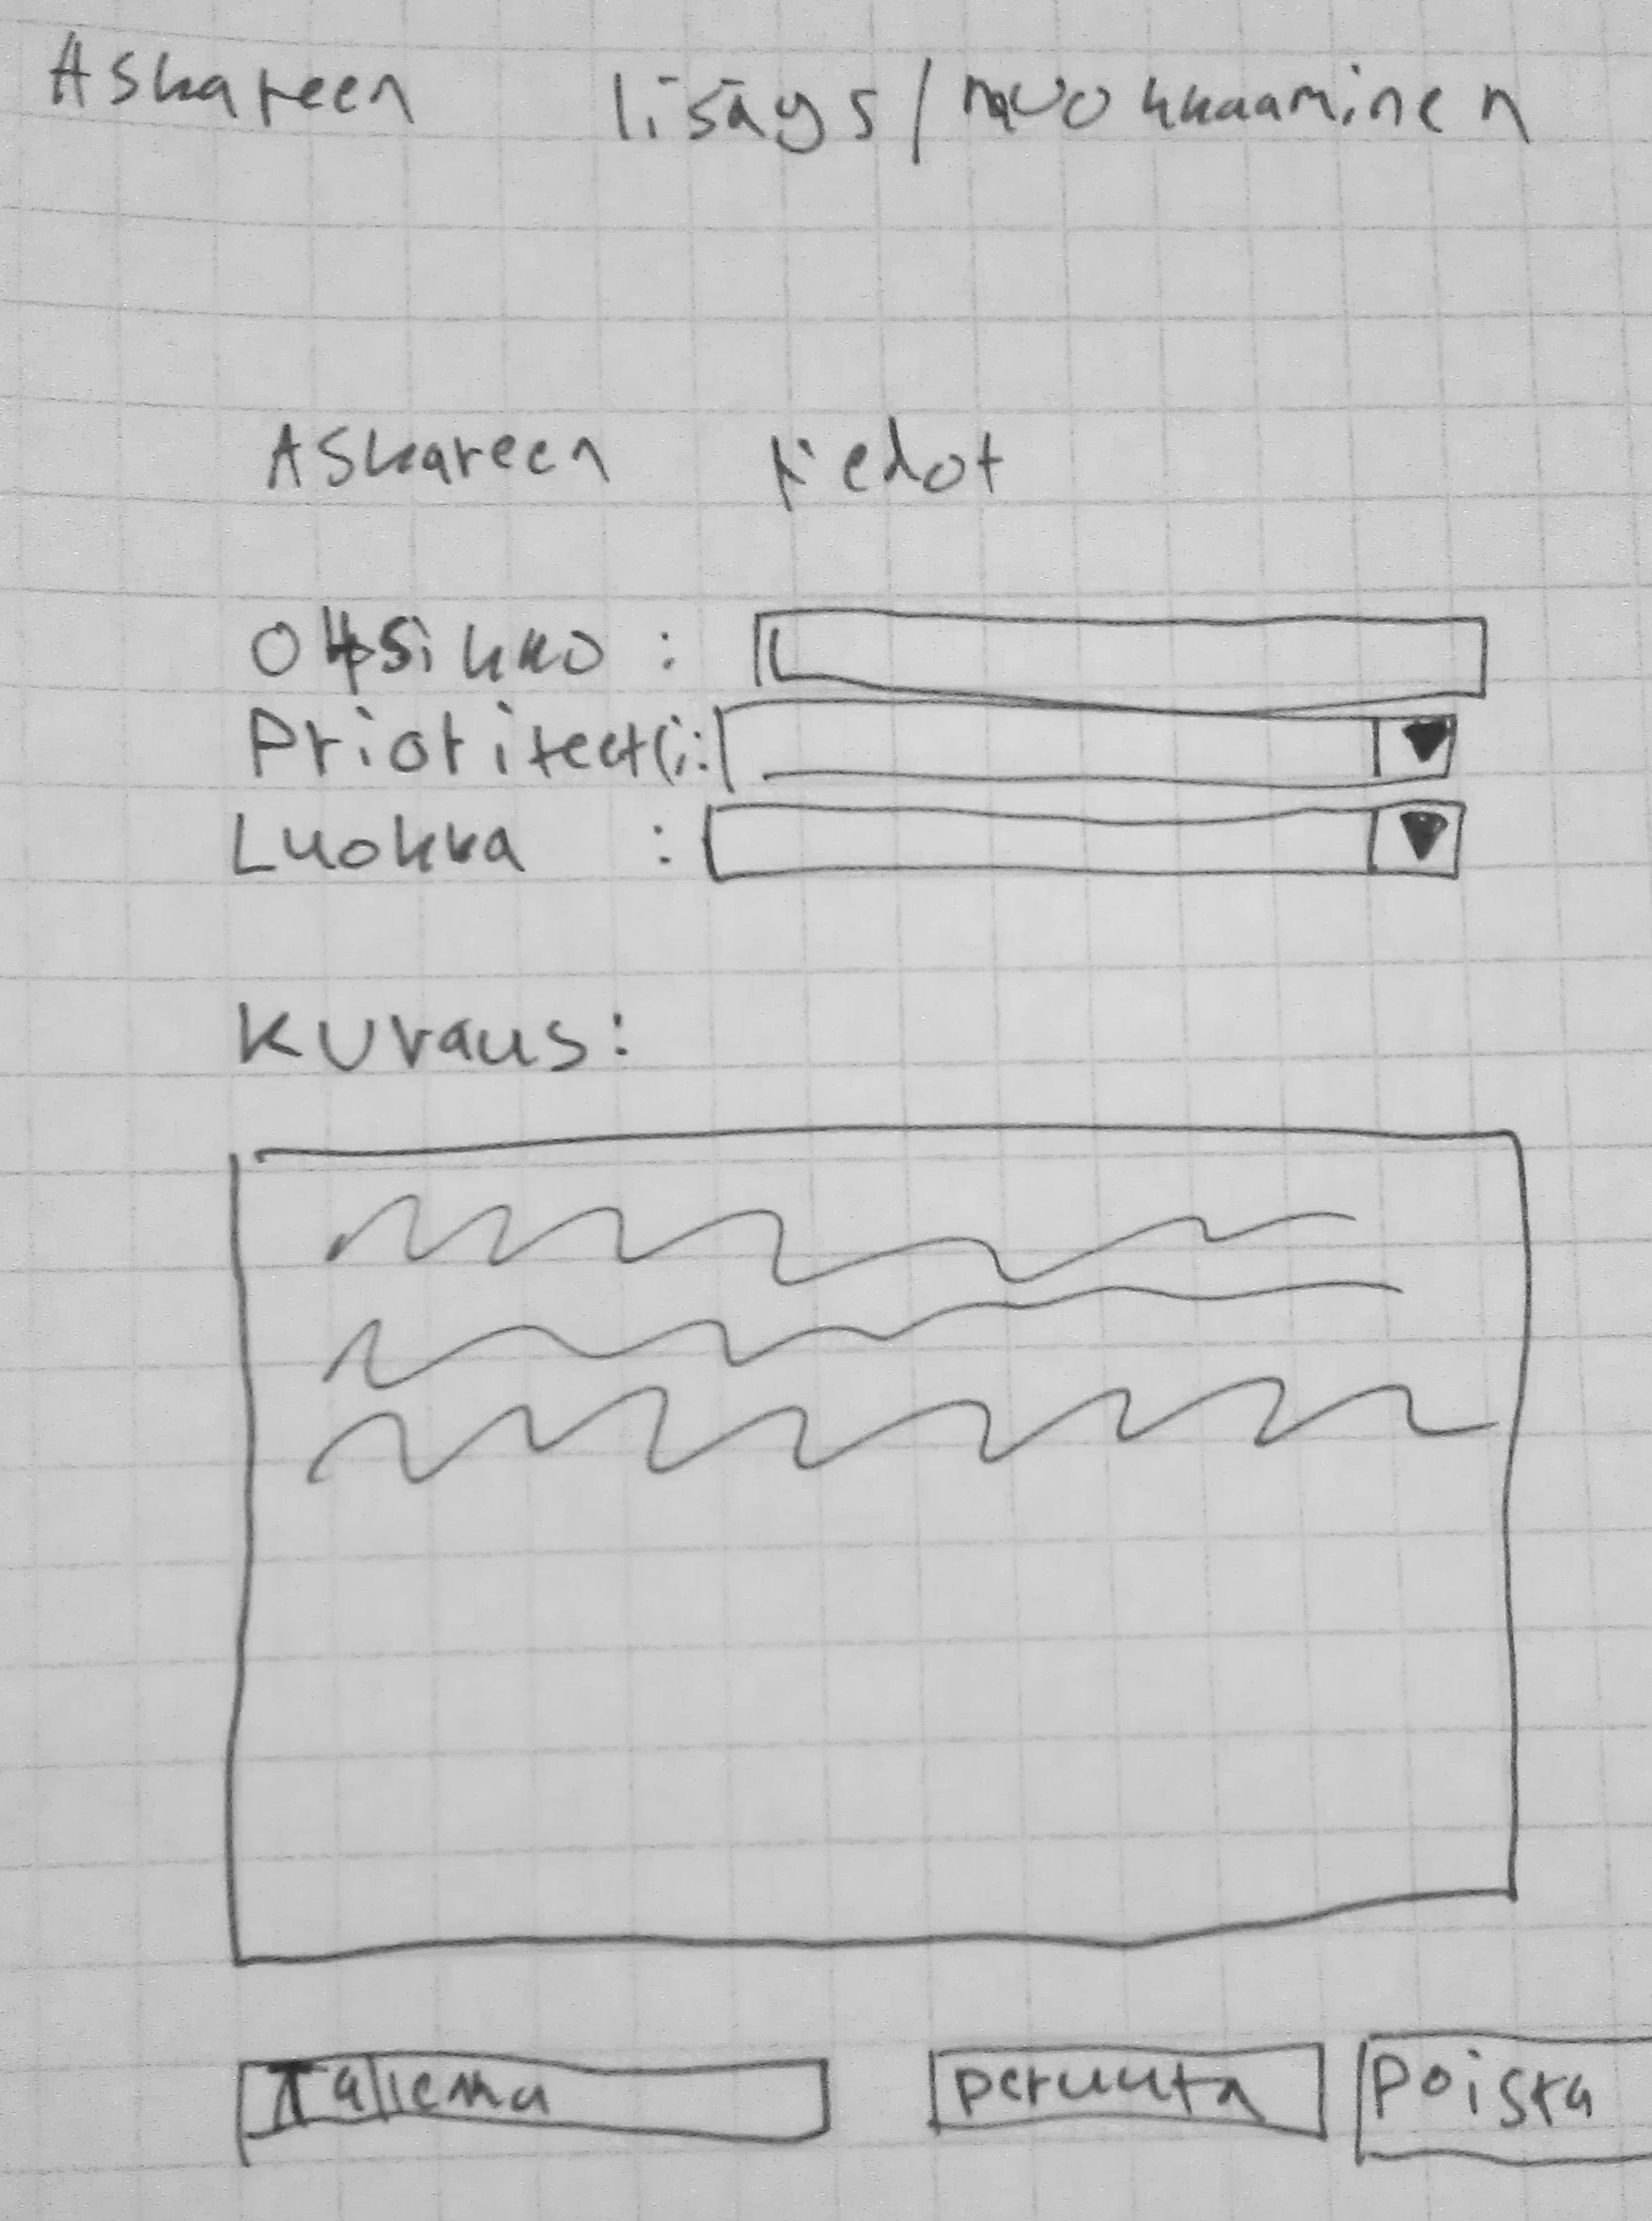 Askareen lisäys/muokkaaminen
Askareen tiedot
Otsikko :
Prioriteetti:
Luokka :
Kuvaus:
Tallenna peruuta Poista